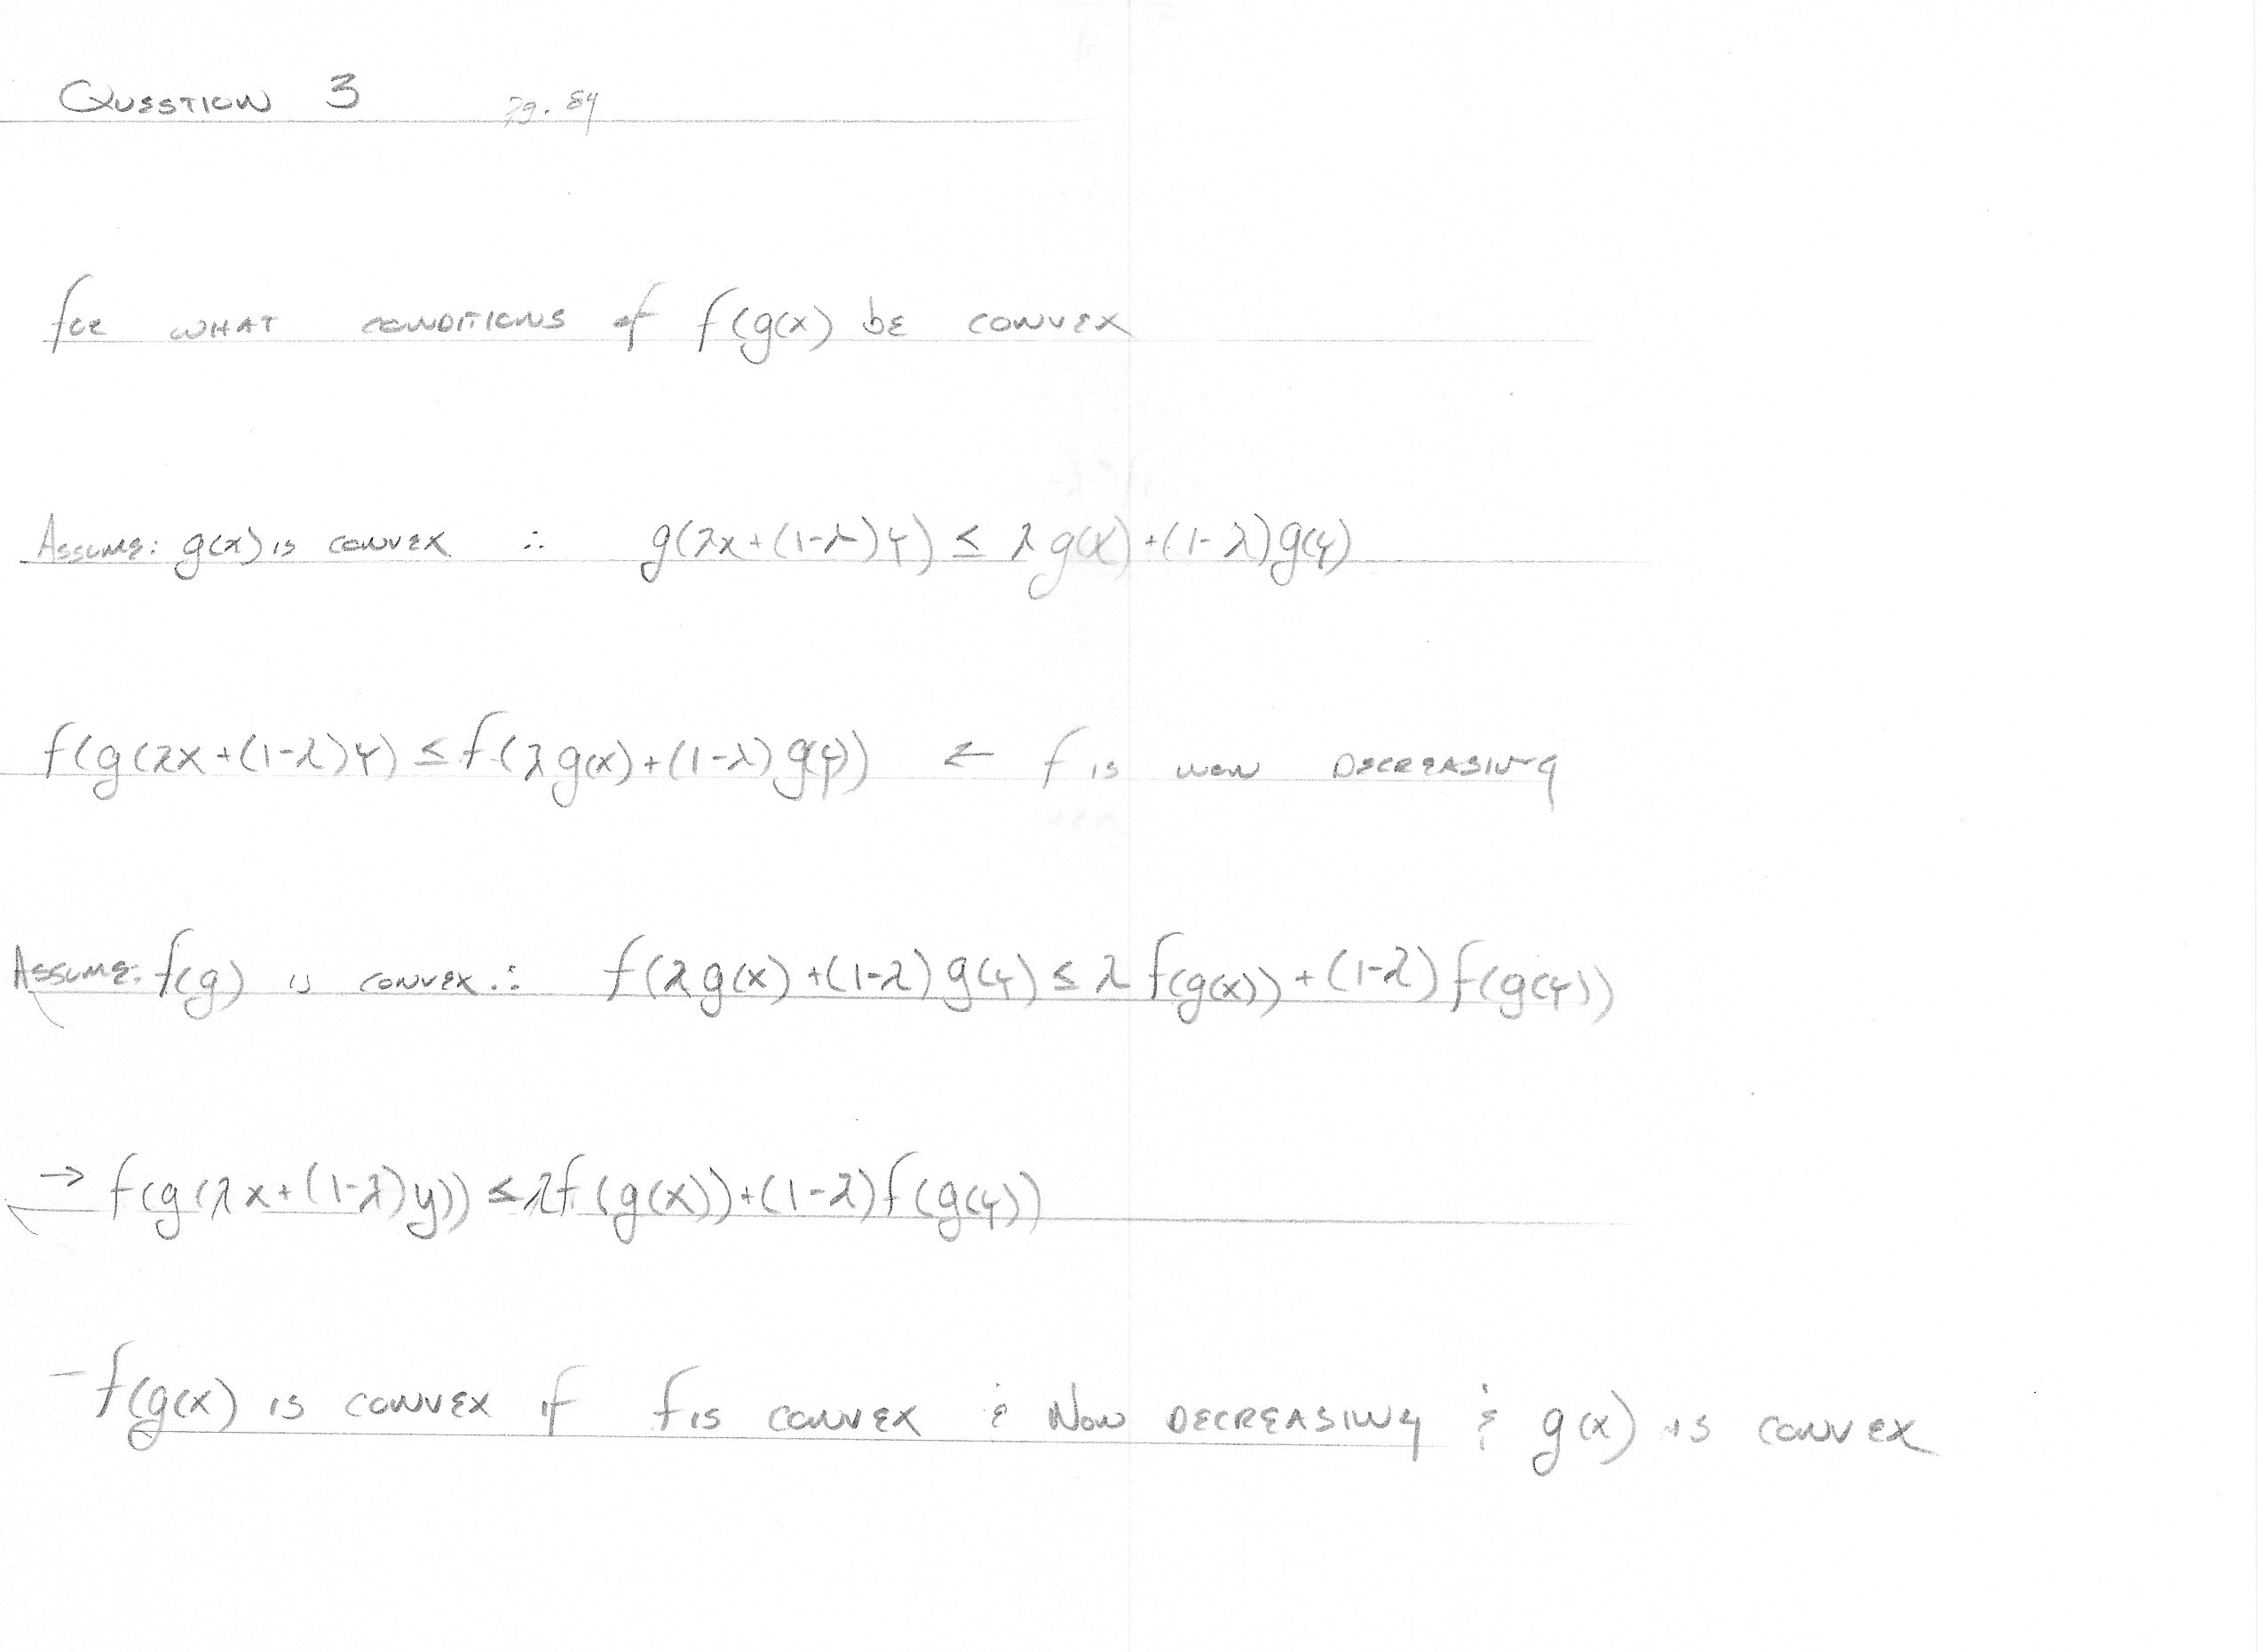 QUESTION 3 pg. 84
for WHAT CONDITIONS of f(g(x) bE CONVEX
ASSUME: g(x) is CONVEX ∴ g(λx+(1-λ)y) ≤ λg(x)+(1-λ)g(y)
f(g(λx+(1-λ)y) ≤ f(λg(x)+(1-λ)g(y)) ← f is NON DECREASING
ASSUME: f(g) is CONVEX ∴ f(λg(x)+(1-λ)g(y) ≤ λf(g(x))+(1-λ)f(g(y))
→ f(g(λx+(1-λ)y)) ≤ λf(g(x))+(1-λ)f(g(y))
- f(g(x) is CONVEX if f is CONVEX & NON DECREASING & g(x) is CONVEX